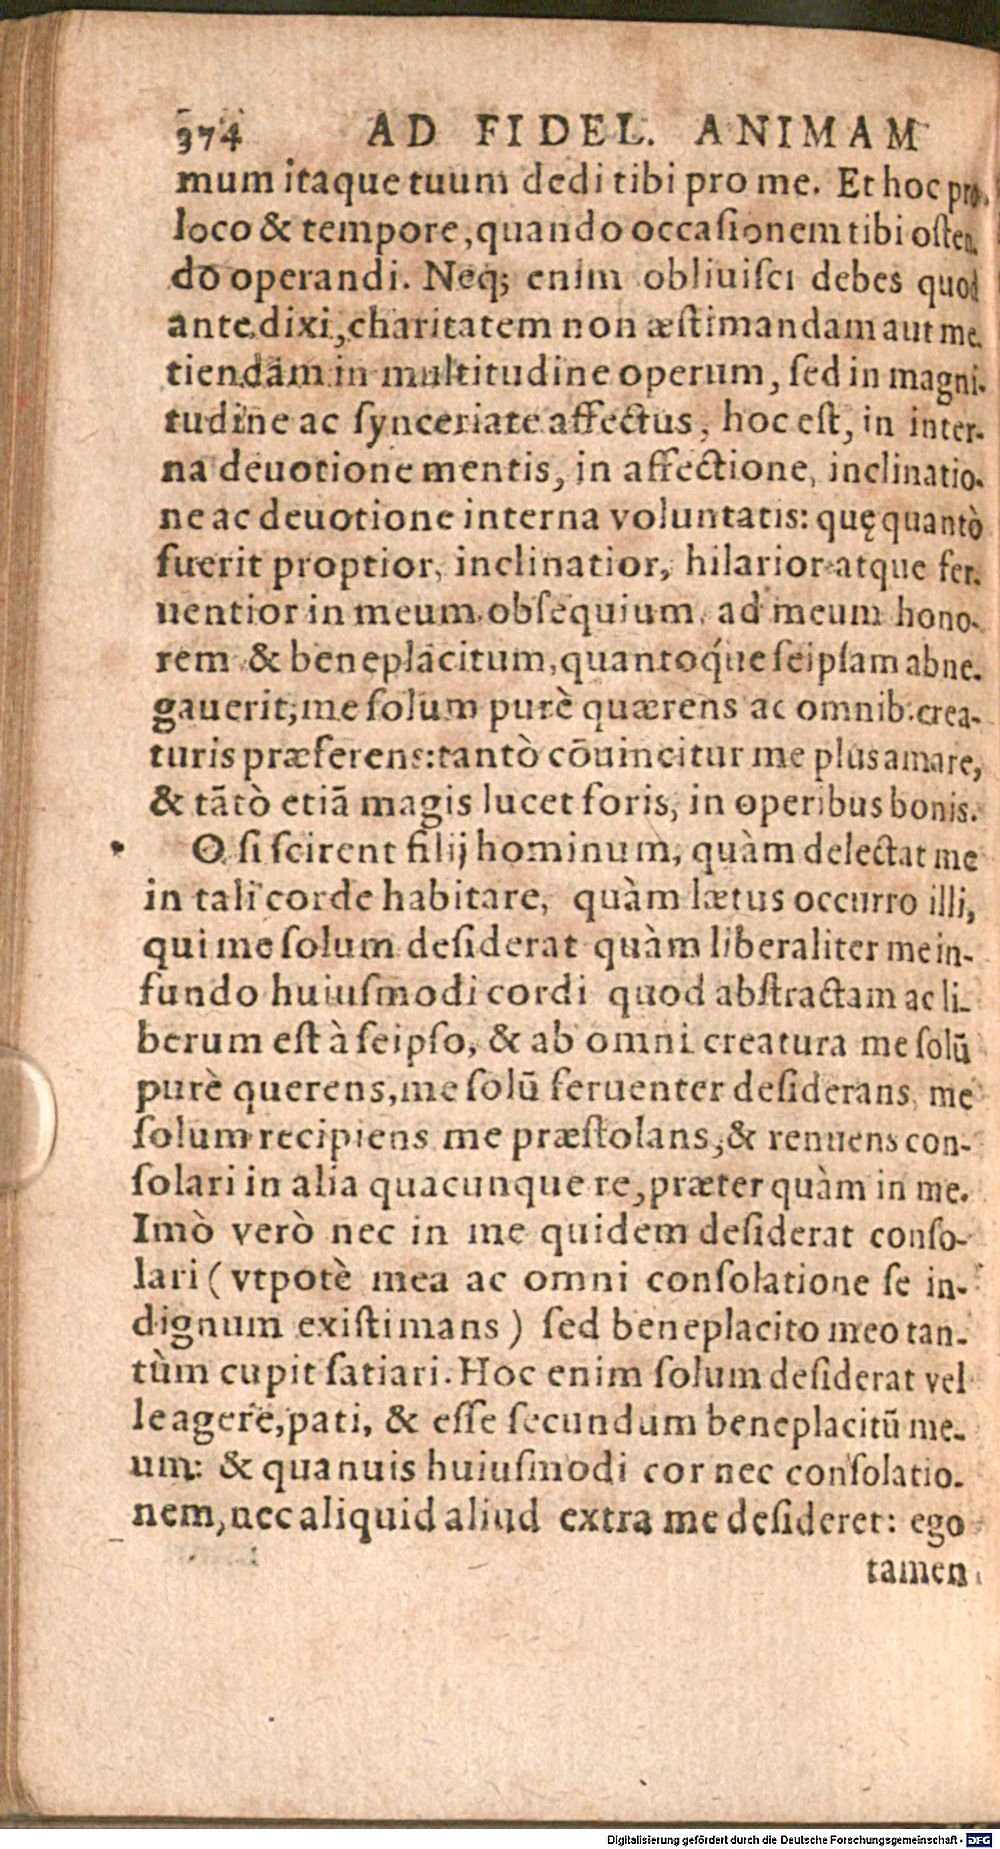 374 AD FIDEL. ANIMAM
mum itaque tuum dedi tibi pro me. Et hoc pro
loco & tempore, quando occasionem tibi osten
do operandi. Neq; enim obliuisci debes quod
ante dixi, charitatem non æstimandam aut me-
tiendam in multitudine operum, sed in magni-
tudine ac synceriate affectus, hoc est, in inter-
na deuotione mentis, in affectione, inclinatio-
ne ac deuotione interna voluntatis: quę quantò
fuerit proptior, inclinatior, hilarior atque fer-
uentior in meum obsequium, ad meum hono-
rem & beneplacitum, quantoq́ue seipsam abne-
gauerit, me solum purè quærens ac omnib. crea-
turis præferens: tantò cōuincitur me plus amare,
& tātò etiā magis lucet foris, in operibus bonis.
O si scirent filij hominum, quàm delectat me
in tali corde habitare, quàm lætus occurro illi,
qui me solum desiderat quàm liberaliter me in-
fundo huiusmodi cordi quod abstractam ac li-
berum est à seipso, & ab omni creatura me solū
purè querens, me solū feruenter desiderans, me
solum recipiens me præstolans, & renuens con-
solari in alia quacunque re, præter quàm in me.
Imò verò nec in me quidem desiderat conso-
lari (vtpotè mea ac omni consolatione se in-
dignum existimans) sed beneplacito meo tan-
tùm cupit satiari. Hoc enim solum desiderat vel
le agere, pati, & esse secundum beneplacitū me-
um: & quanuis huiusmodi cor nec consolatio-
nem, nec aliquid aliud extra me desideret: ego
tamen
Digitalisierung gefördert durch die Deutsche Forschungsgemeinschaft - DFG